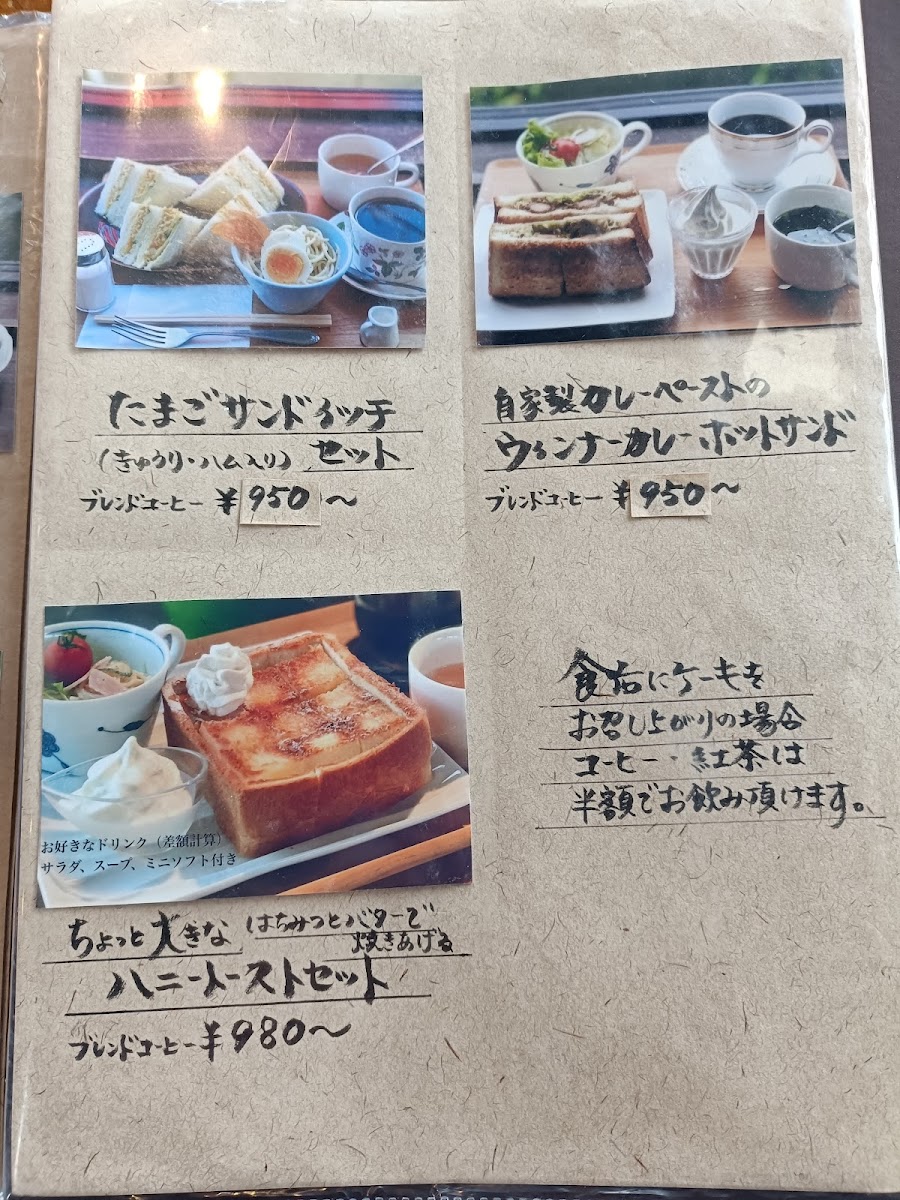 たまごサンドイッチ
(きゅうり・ハム入り) セット
ブレンドコーヒー ¥950〜
自家製カレーペーストの
ウィンナーカレーホットサンド
ブレンドコーヒー ¥950〜
お好きなドリンク（差額計算）
サラダ、スープ、ミニソフト付き
ちょっと大きな はちみつとバターで
焼きあげる
ハニートーストセット
ブレンドコーヒー ¥980〜
食后にケーキを
お召し上がりの場合
コーヒー・紅茶は
半額でお飲み頂けます。